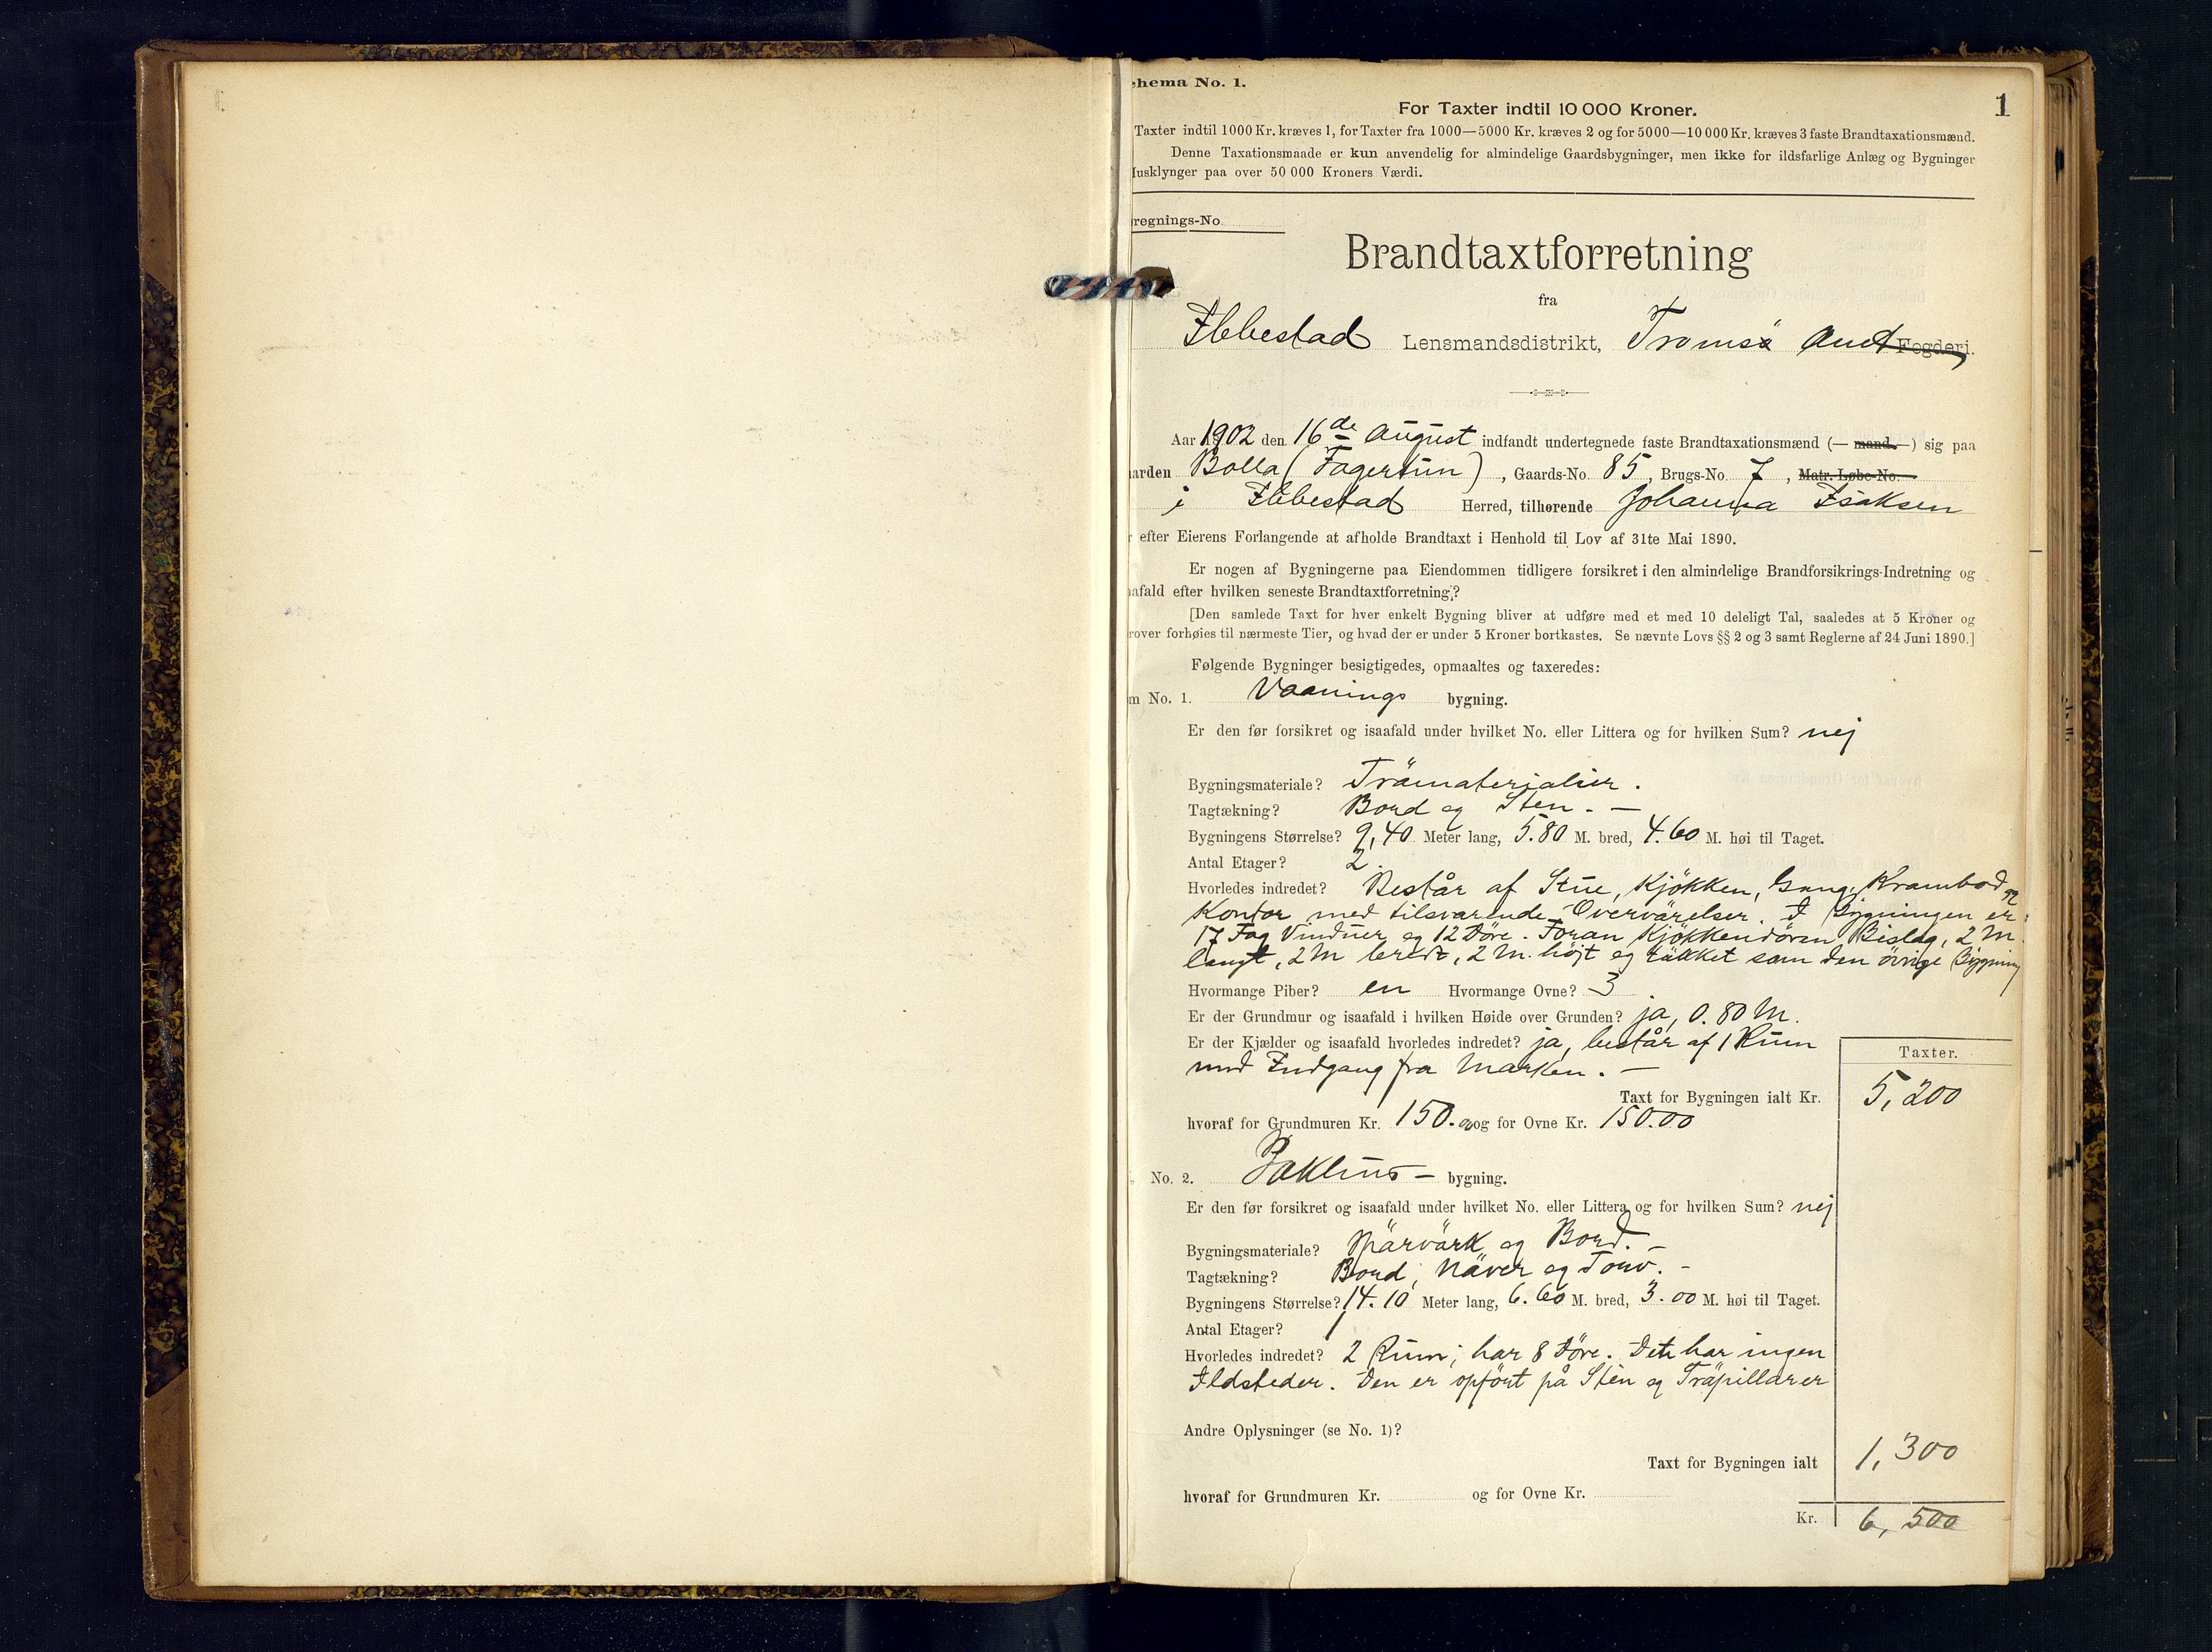 1
chema No. 1.
For Taxter indtil 10 000 Kroner.
Taxter indtil 1000 Kr. kræves 1, for Taxter fra 1000—5000 Kr. kræves 2 og for 5000—10 000 Kr. kræves 3 faste Brandtaxationsmænd.
Denne Taxationsmaade er kun anvendelig for almindelige Gaardsbygninger, men ikke for ildsfarlige Anlæg og Bygninger
Husklynger paa over 50 000 Kroners Værdi.
regnings-No
Brandtaxtforretning
fra
Ibbestad Lensmandsdistrikt, Tromsö Amt Fogderi.
Aar 1902 den 16de August indfandt undertegnede faste Brandtaxationsmænd (— mand. —) sig paa
arden Bolla (Fagertun), Gaards-No. 85, Brugs-No. 7, Matr. Løbe-No.
i Ibbestad Herred, tilhørende Johanna Isaksen
r efter Eierens Forlangende at afholde Brandtaxt i Henhold til Lov af 31te Mai 1890.
Er nogen af Bygningerne paa Eiendommen tidligere forsikret i den almindelige Brandforsikrings-Indretning og
afald efter hvilken seneste Brandtaxtforretning?
[Den samlede Taxt for hver enkelt Bygning bliver at udføre med et med 10 deleligt Tal, saaledes at 5 Kroner og
rover forhøies til nærmeste Tier, og hvad der er under 5 Kroner bortkastes. Se nævnte Lovs §§ 2 og 3 samt Reglerne af 24 Juni 1890.]
Følgende Bygninger besigtigedes, opmaaltes og taxeredes:
m No. 1. Vaanings bygning.
Er den før forsikret og isaafald under hvilket No. eller Littera og for hvilken Sum? nej
Bygningsmateriale? Trämaterialier.
Tagtækning? Bord og Sten. —
Bygningens Størrelse? 9,40 Meter lang, 5.80 M. bred, 4.60 M. høi til Taget.
Antal Etager? 2.
Hvorledes indredet? Består af Stue, Kjökken, Gang, Krambod og
Kontor med tilsvarende Overvärelser. I Bygningen er
17 Fag Vinduer og 12 Döre. Foran Kjökkendören Bislag, 2 M.
langt, 2 M bredt, 2 M. höjt og täkket som den övrige Bygning
Hvormange Piber? en Hvormange Ovne? 3
Er der Grundmur og isaafald i hvilken Høide over Grunden? ja, 0.80 M.
Er der Kjælder og isaafald hvorledes indredet? ja, består af 1 Rum
med Indgang fra Marken. —
Taxter.
Taxt for Bygningen ialt Kr. 5,200
hvoraf for Grundmuren Kr. 150.00 og for Ovne Kr. 150.00
No. 2. — bygning.
Er den før forsikret og isaafald under hvilket No. eller Littera og for hvilken Sum? nej
Bygningsmateriale? og Bord. —
Tagtækning? Bord, Näver og Torv. —
Bygningens Størrelse? 14.10 Meter lang, 6.60 M. bred, 3.00 M. høi til Taget.
Antal Etager? 1
Hvorledes indredet? 2 Rum; har 8 Döre. Det har ingen
Ildsteder. Den er opfört på Sten og Träpillarer
Andre Oplysninger (se No. 1)?
Taxt for Bygningen ialt 1,300
hvoraf for Grundmuren Kr. og for Ovne Kr.
Kr. 6,500